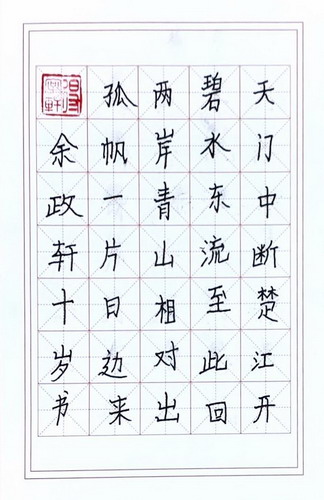 天门中断楚江开
碧水东流至此回
两岸青山相对出
孤帆一片日边来
余政轩十岁书